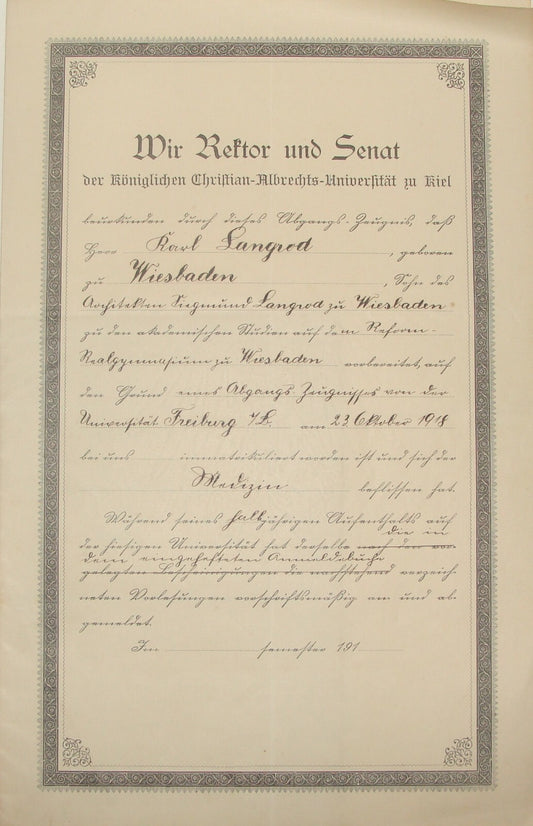 Wir Rektor und Senat
der Königlichen Christian-Albrechts-Universität zu Kiel
beurkunden durch dieses Abgangs-Zeugnis, daß
Herr Karl Langrod, geboren
zu Wiesbaden, Sohn des
Architekten Siegmund Langrod zu Wiesbaden
zu den akademischen Studien auf dem Reform-
Realgymnasium zu Wiesbaden vorbereitet, auf
den Grund eines Abgangs Zeugnisses von der
Universität Freiburg i/B. am 23. Oktober 1918
bei uns immatrikuliert worden ist und sich der
Medizin beflissen hat.
Während seines halbjährigen Aufenthalts auf
der hiesigen Universität hat derselbe nach den vor- die in
dem eingehefteten Anmeldebuche
gelegten Bescheinigungen die nachstehend verzeich-
neten Vorlesungen vorschriftsmäßig an und ab-
gemeldet.
Im semester 191